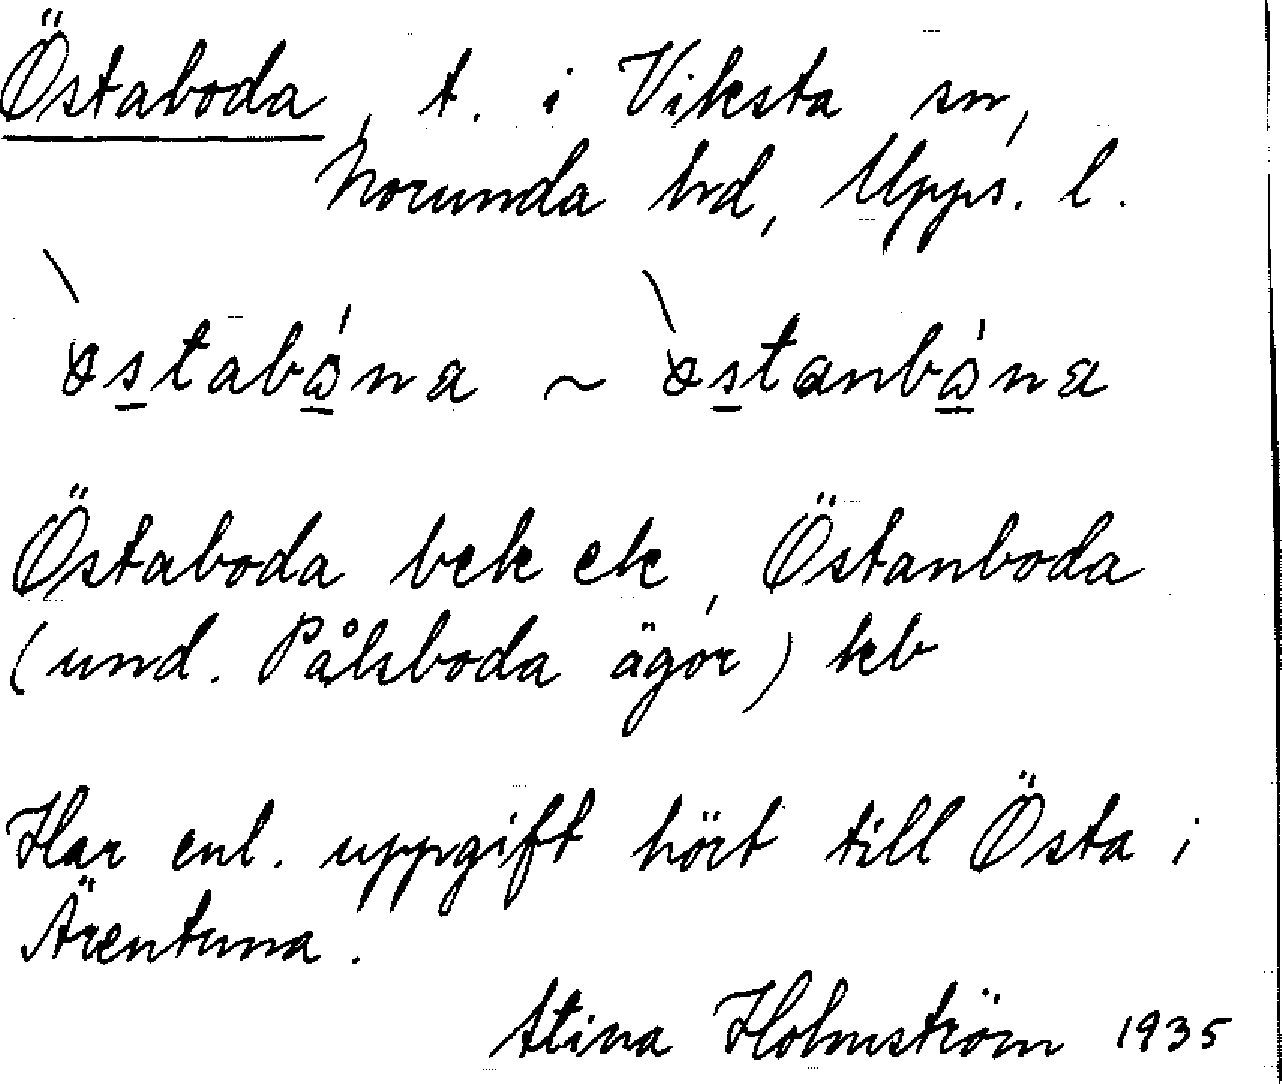 Östaboda, t. i Viksta sn,
Norunda hd, Upps. l.
östabo̱na ~ östanbo̱na
Östaboda bek ek, Östanboda
(und. Pålsboda ägor) kb
Har enl. uppgift hört till Östa i
Ärentuna.
Stina Holmström 1935